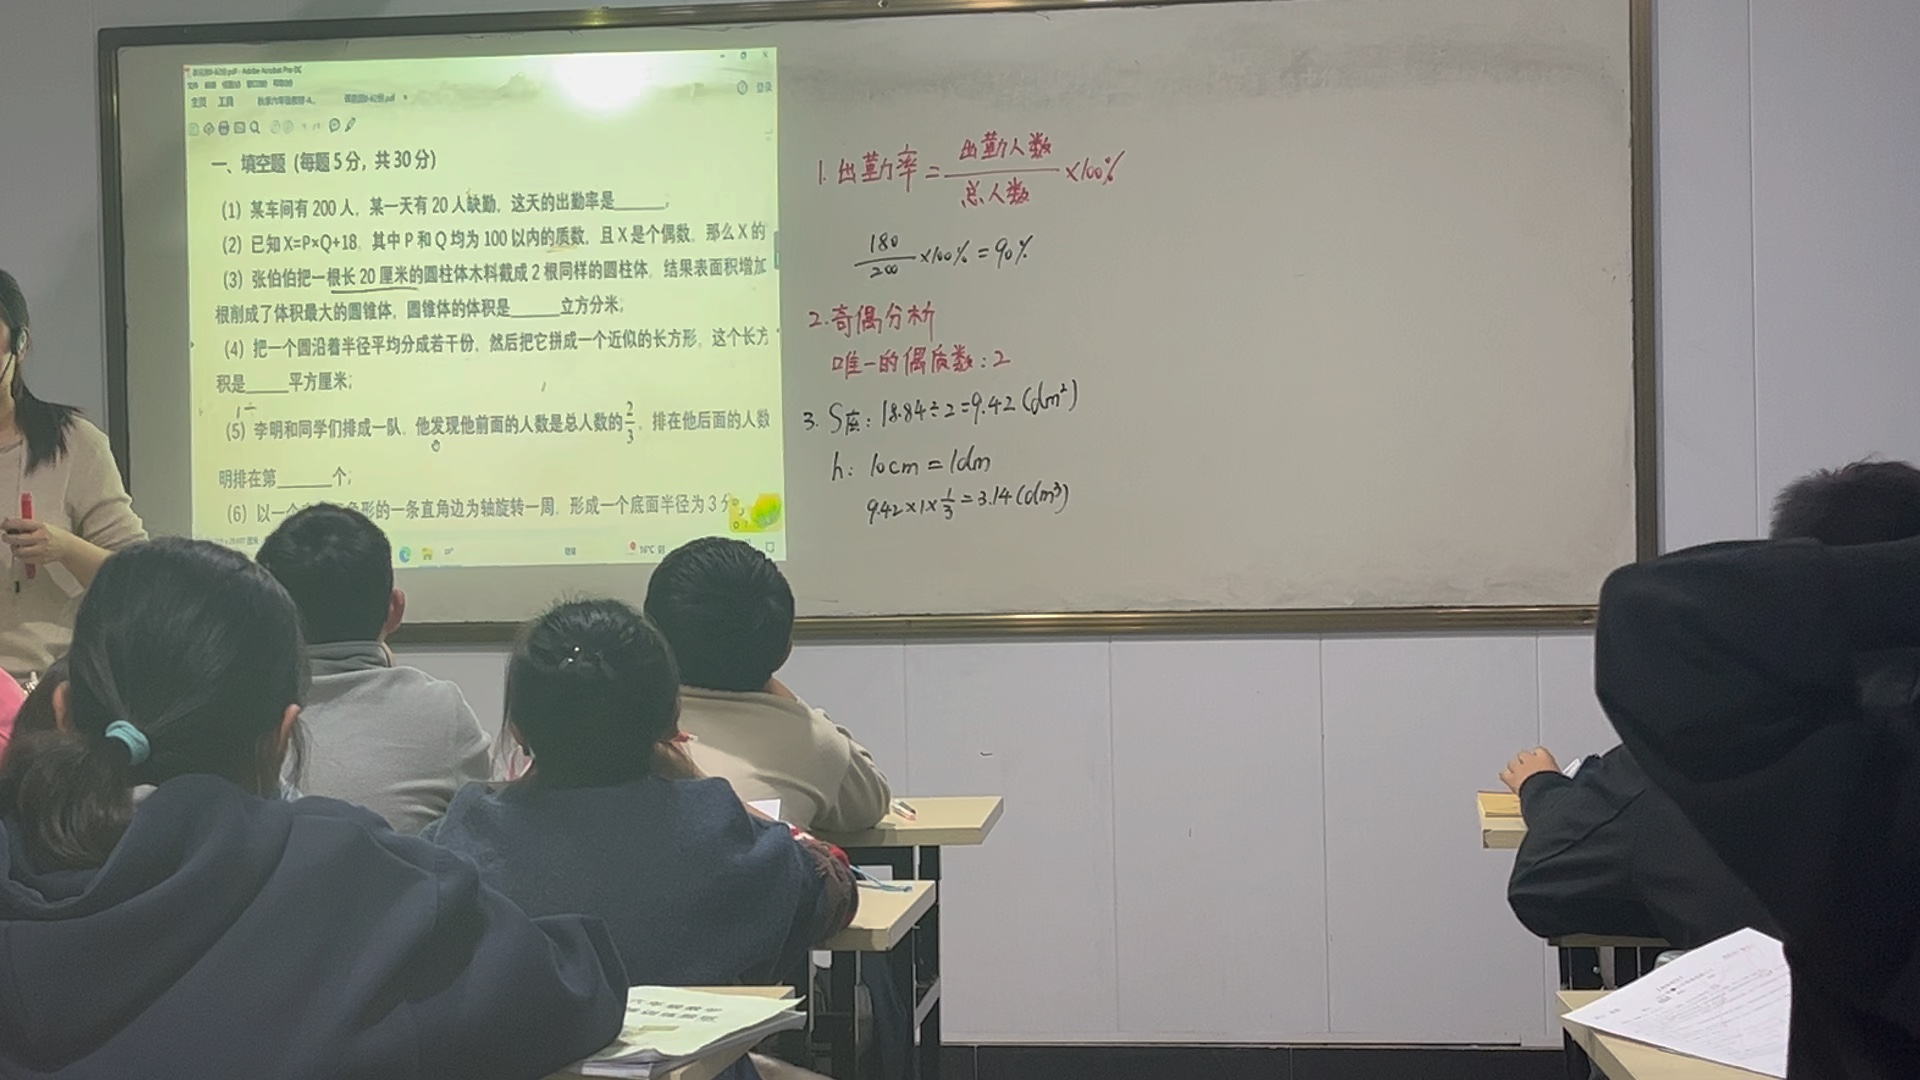 主页 工具
登录
一、填空题（每题5分，共30分）
（1）某车间有200人，某一天有20人缺勤，这天的出勤率是______；
（2）已知X=P×Q+18，其中P和Q均为100以内的质数，且X是个偶数，那么X的
（3）张伯伯把一根长20厘米的圆柱体木料截成2根同样的圆柱体，结果表面积增加
根削成了体积最大的圆锥体，圆锥体的体积是______立方分米；
（4）把一个圆沿着半径平均分成若干份，然后把它拼成一个近似的长方形，这个长方
积是_____平方厘米；
（5）李明和同学们排成一队，他发现他前面的人数是总人数的2/3，排在他后面的人数
明排在第_______个；
（6）以一个 角形的一条直角边为轴旋转一周，形成一个底面半径为3分
16°C
1.出勤率=出勤人数/总人数×100%
180/200×100%=90%
2.奇偶分析
唯一的偶质数:2
3. S底: 18.84÷2=9.42(dm²)
h: 10cm=1dm
9.42×1×1/3=3.14(dm³)
六年级数学